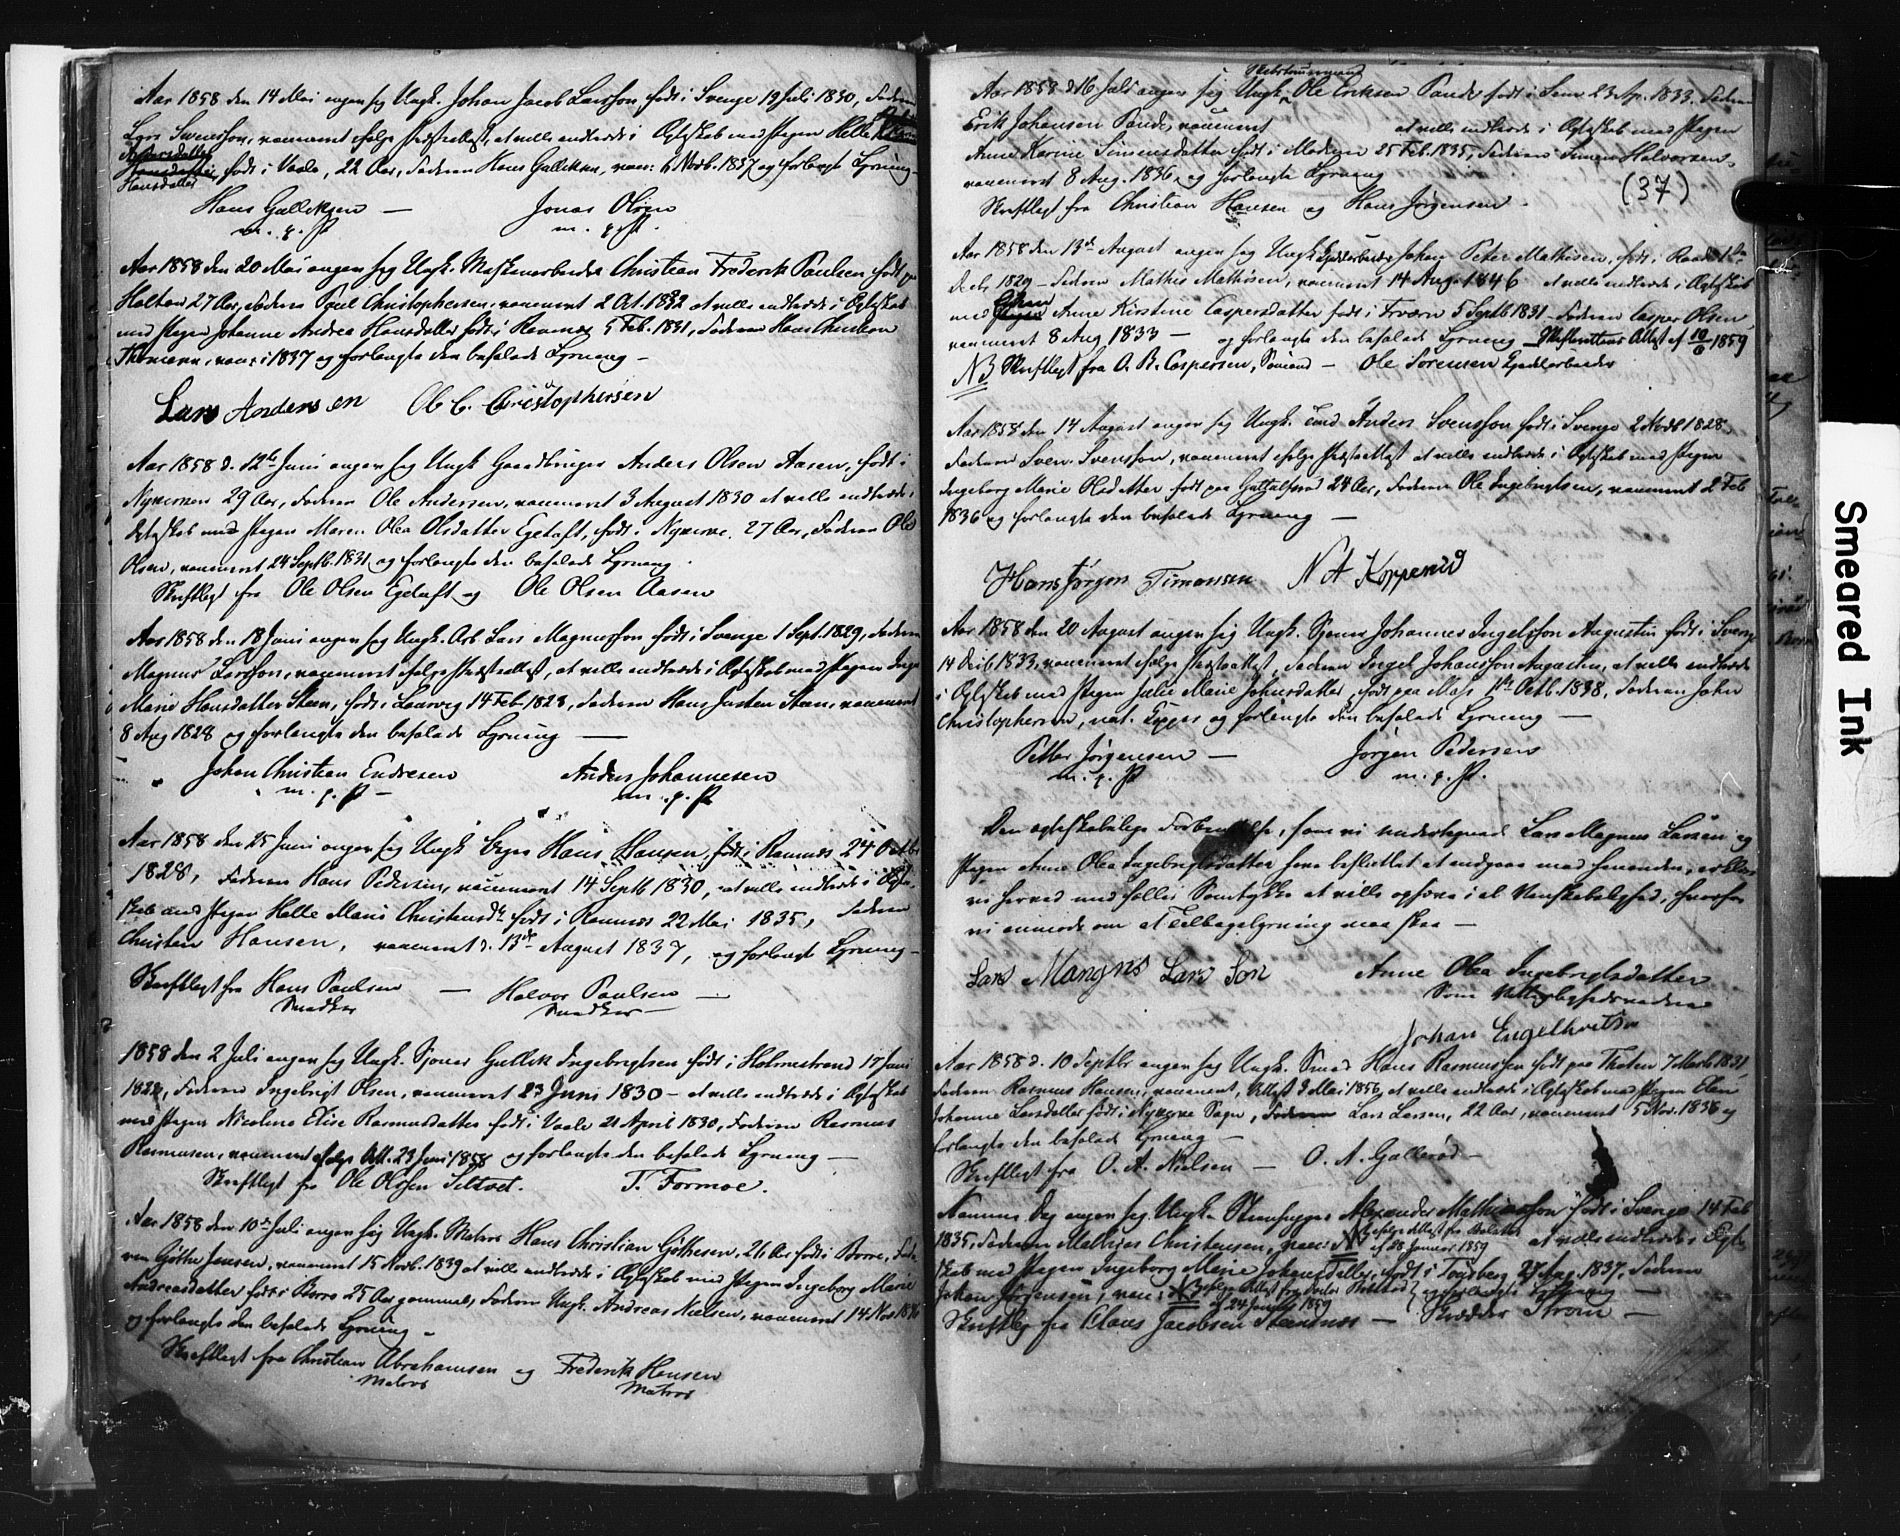 Aar 1858 den 14 Mai angav sig Ungk. Johan Jacob Larsson, født i Sverige 19 Juli 1830, Faderen
Lars Swensson, vaccineret ifølge Præsteattest, at ville indtræde i Ægteskab med Pigen Helle
Hansdatter, født i Vaale, 22 Aar, Faderen Hans Gulliksen, vacc. 6 Novb. 1837 og forlangte Lysning
Hans Gulliksen — Jonas Olsen
m. p. P. m. p. P.
Aar 1858 den 20 Mai angav sig Ungk. Christian Frederik Paulsen, født paa
Halten 27 Aar, Faderen Poul Christophersen, vaccineret 2 Oct. 1832 at ville indtræde i Ægteskab
med Pigen Johanne Andrea Hansdatter født i Ramnæs 5 Feb. 1831, Faderen Hans Christian
Thomasen, vacc. i 1837 og forlangte den befalede Lysning —
Lars Andersen Ole C. Christophersen
Aar 1858 d. 12te Juni angav sig Ungk Gaardbruger Anders Olsen Aasen, født i
Nykirken 29 Aar, Faderen Ole Andersen, vaccineret 3 August 1830 at ville indtræde i
Ægteskab med Pigen Maren Olea Olsdatter Egetuft, født i Nykirke, 27 Aar, Faderen Ole
Olsen, vaccineret 24 Septb. 1831 og forlangte den befalede Lysning.
Skriftligt fra Ole Olsen Egetuft og Ole Olsen Aasen
Aar 1858 den 18 Juni angav sig Ungk. Arb Lars Magnusson født i Sverige 1 Sept. 1829, Faderen
Magnus Larsson, vaccineret ifølge Præsteattest, at ville indtræde i Ægteskab med Pigen Inger
Marie Hansdatter Steen, født i Laurvig 14 Feb. 1828, Faderen Hans Justen Steen, vaccineret
8 Aug 1828 og forlangte den befalede Lysning —
Johan Christian Endresen Anders Johannesen
m. p. P — m. p. P.
Aar 1858 den 25 Juni angav sig Ungk Hans Hansen, født i Ramnæs 24 Octbr
1828, Faderen Hans Pedersen, vaccineret 14 Septb 1830, at ville indtræde i Ægte-
skab med Pigen Helle Marie Christensdtr født i Ramnæs 22 Mai 1835, Faderen
Christen Hansen, vaccineret d. 13de August 1837, og forlangte Lysning —
Skriftligt fra Hans Paulsen — Halvor Paulsen —
Snedker Snedker —
1858 den 2 Juli angav sig Ungk. Sjømd Gullik Ingebregtsen født i Holmestrand 17 Juni
1828, Faderen Ingebrigt Olsen, vaccineret 23 Juni 1830 — at ville indtræde i Ægteskab
med Pigen Nicoline Elise Rasmusdatter født i Vaale 21 April 1830, Faderen Rasmus
Rasmusen, vaccineret ifølge Att. 23 Juni 1858 og forlangte den befalede Lysning —
Skriftligt fra Ole Olsen Seltvet. T. Formoe.
Aar 1858 den 10de Juli angav sig Ungk. Matros Hans Christian Gøthesen, 26 Aar født i Borre, Fade-
ren Gøthe Jensen, vaccineret 15 Novb. 1839 at ville indtræde i Ægteskab med Pigen Ingeborg Marie
Andreasdatter født i Borre 25 Aar gammel, Faderen Ungk. Andreas Nielsen, vaccineret 14 Nov.
og forlangte den befalede Lysning —
Skriftligt fra Christian Abrahamsen og Frederik Hansen
Matros Matros
Aar 1858 d 16 Juli angav sig Ungk. Ole Erikson Sande født i Sem 23 Ap. 1833. Faderen
Erik Johansen Sande, vaccineret at ville indtræde i Ægteskab med Pigen
Anne Karine Simensdatter født i Modum 25 Feb. 1835, Faderen Simen Halvorsen,
vaccineret 8 Aug. 1836, og forlangte Lysning
(37)
Skriftligt fra Christian Hansen og Hans Jørgensen.
Aar 1858 den 13de August angav sig Ungk Johan Peter Mathisen, født i 1ste
Decb. 1829 — Faderen Mathis Mathisen, vaccineret 14 Aug. 1846 at ville indtræde i Ægteskab
med Anne Kirstine Caspersdatter født i Froern 5 Septb 1831 — Faderen Casper Olsen,
vaccineret 8 Aug 1833 — og forlangte den befalede Lysning Skifterettens Attest af 10/6 1859
NB Skriftligt fra O. B. Caspersen, Sømand — Ole Sørensen
Aar 1858 den 14 August angav sig Ungk. Anders Svensson født i Sverige 2 Novb 1828,
Faderen Sven Svensson, vaccineret ifølge Præsteattest at ville indtræde i Ægteskab med Pigen
Ingeborg Marie Olsdatter født paa 24 Aar, Faderen Ole Ingebrigtsen, vaccineret 2 Feb
1836 og forlangte den befalede Lysning —
Hans Jørgen Timansen N A Koppenrud
Aar 1858 den 20 August angav sig Ungk. Sjømd Johannes Ingelsson Augustin født i Sverige
14 Decb 1833, vaccineret ifølge Præsteattest, Faderen Ingel Johansson Augusten, at ville indtræde
i Ægteskab med Pigen Julie Marie Johnsdatter, født paa Mass 11te Octb. 1838, Faderen John
Christophersen, nat. Kopper og forlangte den befalede Lysning —
Petter Jørgensen — Jørgen Pedersen
m. p. P m. p. P.
Den ægteskabelige Forbindelse, som vi undertegnede Lars Magnus Larsen og
Pigen Anne Olea Ingebregtsdatter have besluttet at indgaae med hinanden, erklære
vi herved med fælles Samtykke at ville ophæve i al Venskabelighed, hvorfor
vi anmode om at Tilbagelysning maa skee —
Lars Mangns Lars Son Anne Olea Ingebregtsdatter
Som Vitterlighedsvidne
Johan Engelhvitsen
Aar 1858 d. 10 Septbr angav sig Ungk. Smed Hans Rasmussen født paa Thoten 7 Marts 1831,
Faderen Rasmus Hansen, vaccineret, Attest 3 Mai 1856, at ville indtræde i Ægteskab med Pigen Elen
Johanne Larsdatter født i Nykirke Sogn, Faderen Lars Larsen, 22 Aar, vaccineret 5 Nov. 1836 og
forlangte den befalede Lysning —
Skriftligt fra O. A. Nielsen — O. A. Gallerød —
Samme Dag angav sig Ungk. Steenhugger Alexander Mathiasson født i Sverige 14 Feb
1835, Faderen Mathias Christensen, vacc. ifølge Attest fra af 28 Januar 1859 at ville indtræde i Ægte-
skab med Pigen Ingeborg Marie Johansdatter, født i Tønsberg 27 Aug. 1837, Faderen
Johan Jørgensen, vacc. ifølge Attest fra Doctor af 24 Januar 1859 og forlangte Lysning —
Skriftlig fra Claus Jacobsen — Skrædder Strøm —
Smeared Ink